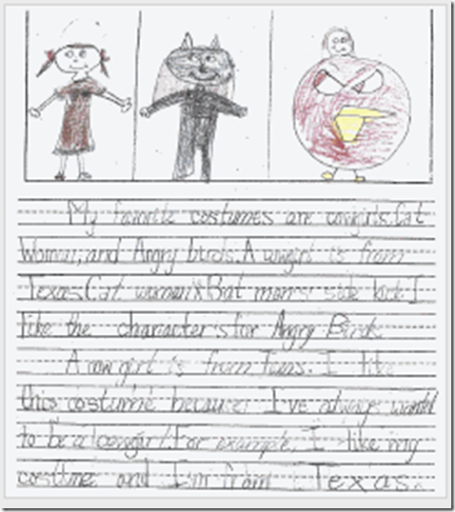 My favorite costumes are cowgirls, Cat
Woman, and Angry birds. A cowgirl is from
Texas. Cat woman is Bat man's side kick. I
like the characters for Angry Birds.
A cowgirl is from Texas. I like
this costume because I've always wanted
to be a cowgirl. For example, I like my
costume and I'm from Texas.